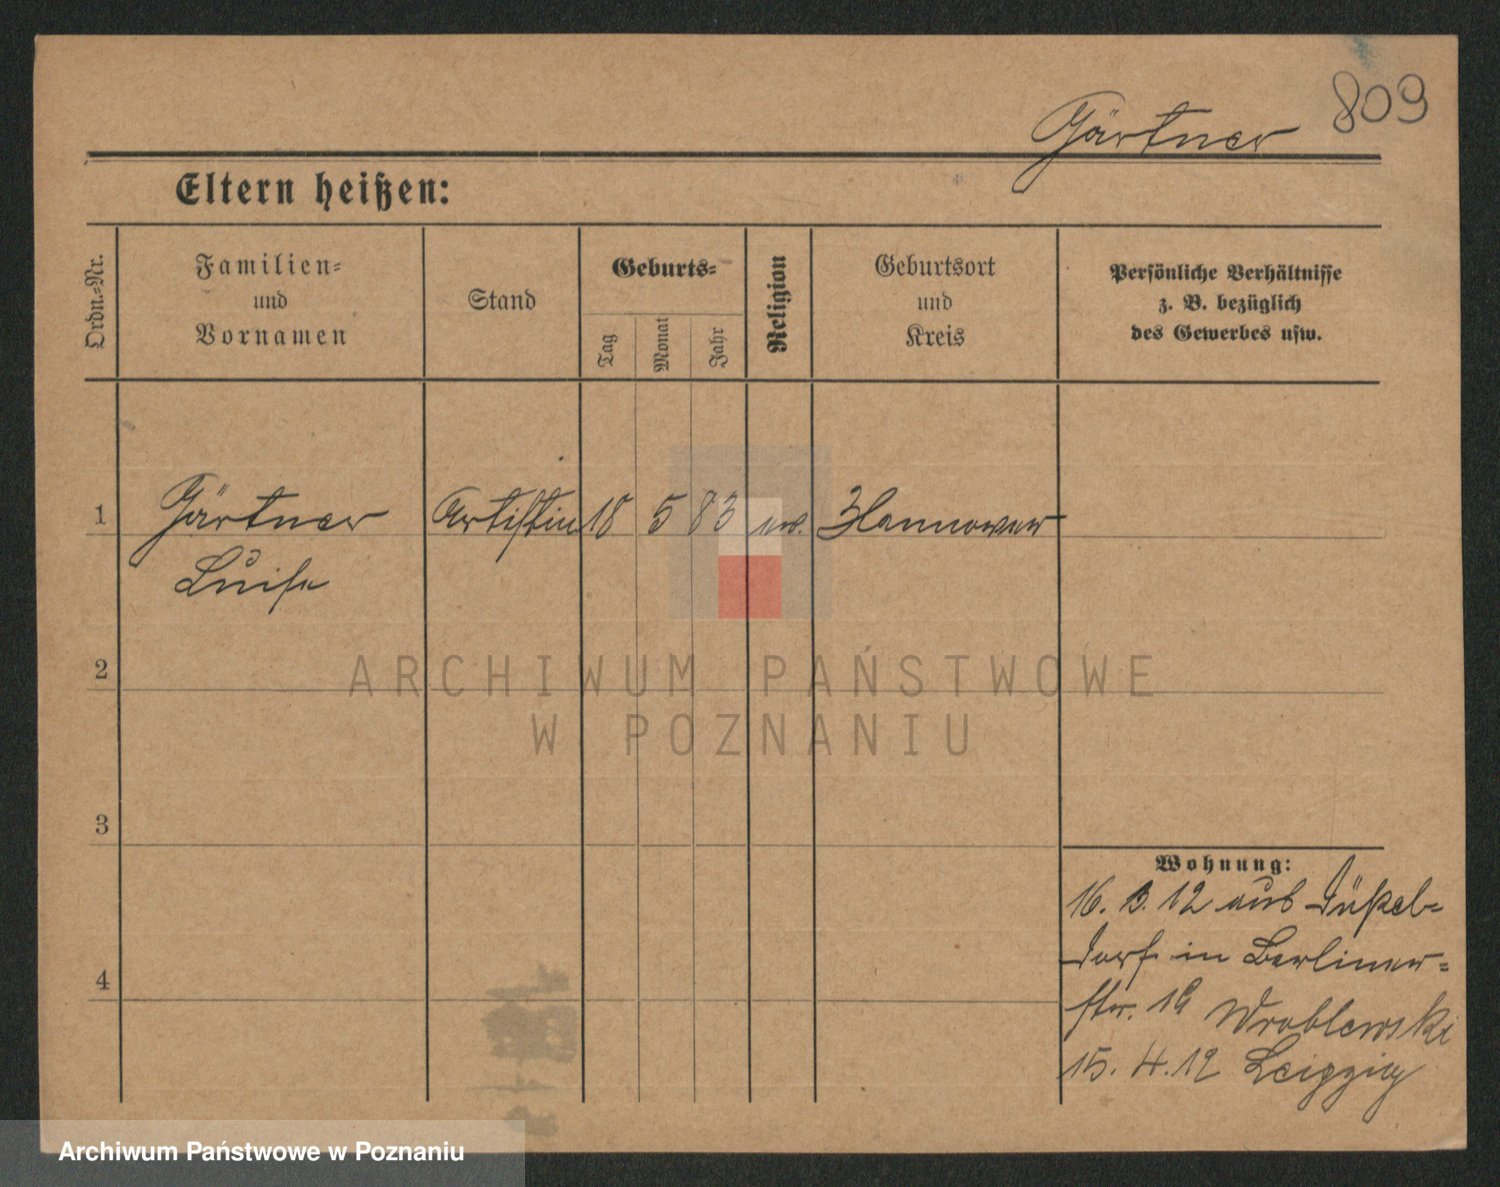 809
Gärtner
Eltern heißen:
Ordn.-Nr.
Familien-
und
Vornamen
Stand
Geburts-
Tag
Monat
Jahr
Religion
Geburtsort
und
Kreis
Persönliche Verhältnisse
z. B. bezüglich
des Gewerbes usw.
1 Gärtner Artistin 18 5 83 ev. Hannover
Luise
2
3
4
Wohnung:
16. 3. 12 aus Düßel-
dorf in Berliner-
str. 19 Wroblewski
15. 4. 12 Leipzig
ARCHIWUM PAŃSTWOWE
W POZNANIU
Archiwum Państwowe w Poznaniu